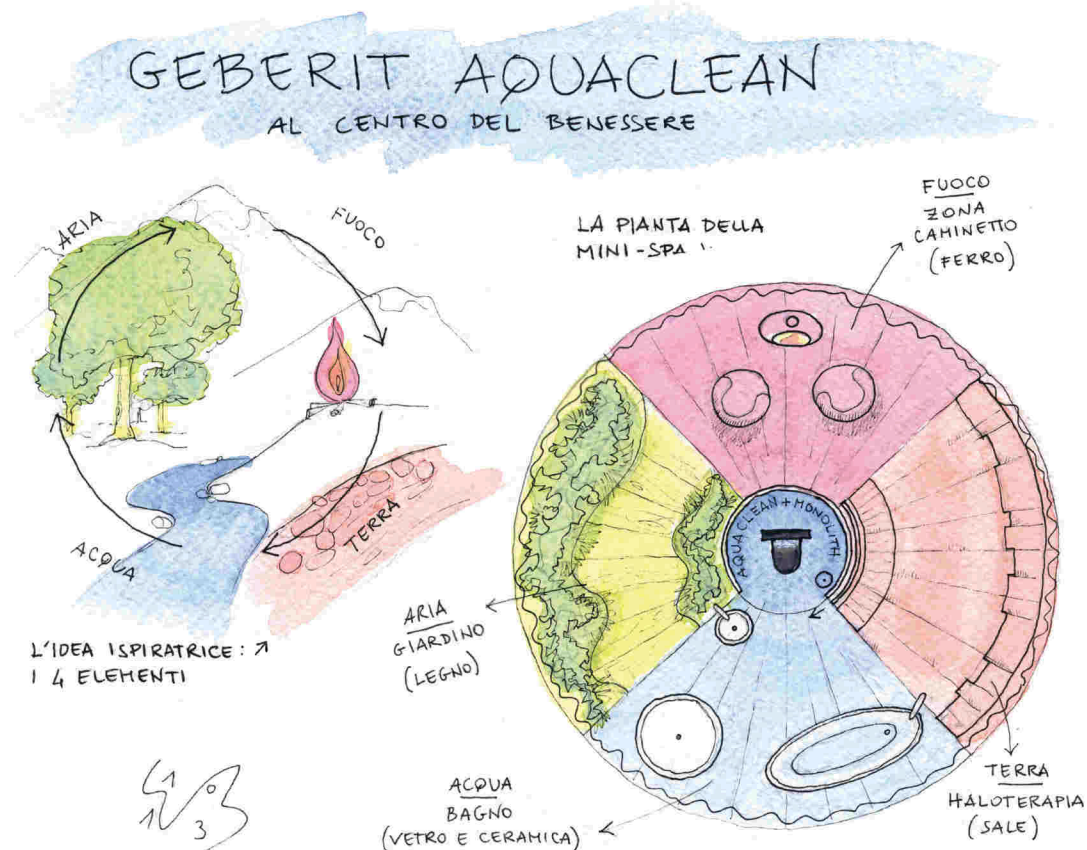 GEBERIT AQUACLEAN
AL CENTRO DEL BENESSERE
ARIA
FUOCO
ACQUA
TERRA
L'IDEA ISPIRATRICE:
I 4 ELEMENTI
LA PIANTA DELLA
MINI-SPA
FUOCO
ZONA
CAMINETTO
(FERRO)
AQUACLEAN + MONOLITH
ARIA
GIARDINO
(LEGNO)
ACQUA
BAGNO
(VETRO E CERAMICA)
TERRA
HALOTERAPIA
(SALE)